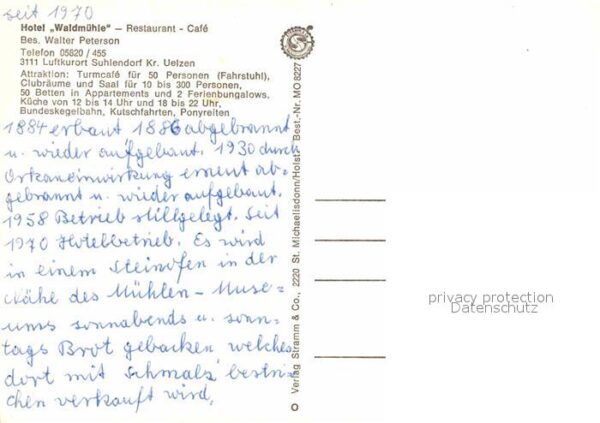 seit 1970
Hotel „Waldmühle“ — Restaurant - Café
Bes. Walter Peterson
Telefon 05820 / 455
3111 Luftkurort Suhlendorf Kr. Uelzen
Attraktion: Turmcafé für 50 Personen (Fahrstuhl),
Clubräume und Saal für 10 bis 300 Personen,
50 Betten in Appartements und 2 Ferienbungalows.
Küche von 12 bis 14 Uhr und 18 bis 22 Uhr,
Bundeskegelbahn, Kutschfahrten, Ponyreiten
1884 erbaut 1886 abgebrannt
u. wieder aufgebaut. 1930 durch
Orkaneinwirkung erneut ab-
gebrannt u. wieder aufgebaut.
1958 Betrieb stillgelegt. Seit
1970 Hotelbetrieb. Es wird
in einem Steinofen in der
Nähe des Mühlen-Muse-
ums sonnabends u. sonn-
tags Brot gebacken welches
dort mit Schmalz bestri-
chen verkauft wird.
Verlag Stramm & Co., 2220 St. Michaelisdonn/Holst. Best.-Nr. MO 8227
privacy protection
Datenschutz